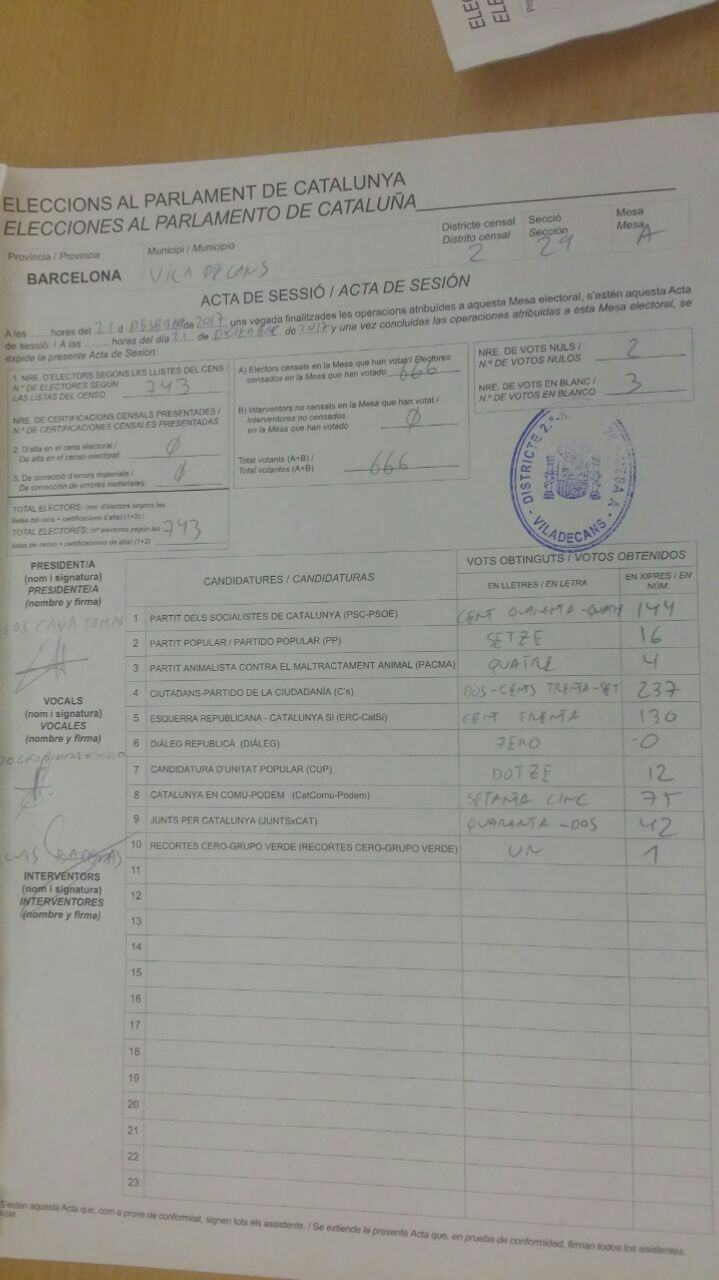 ELECCIONS AL PARLAMENT DE CATALUNYA
ELECCIONES AL PARLAMENTO DE CATALUÑA
Província / Provincia
BARCELONA
Municipi / Municipio
VILADECANS
Districte censal
Distrito censal
2
Secció
Sección
29
Mesa
Mesa
A
ACTA DE SESSIÓ / ACTA DE SESIÓN
A les ........ hores del 21 d DESEMBRE de 2017, una vegada finalitzades les operacions atribuïdes a aquesta Mesa electoral, s'estén aquesta Acta
de sessió: / A las ........ horas del día 21 de DICIEMBRE de 2017 y una vez concluidas las operaciones atribuidas a esta Mesa electoral, se
expide la presente Acta de Sesión:
1. NRE. D'ELECTORS SEGONS LES LLISTES DEL CENS /
N.º DE ELECTORES SEGÚN
LAS LISTAS DEL CENSO 743
NRE. DE CERTIFICACIONS CENSALS PRESENTADES /
N.º DE CERTIFICACIONES CENSALES PRESENTADAS
2. D'alta en el cens electoral /
De alta en el censo electoral: Ø
3. De correcció d'errors materials /
De corrección de errores materiales: Ø
TOTAL ELECTORS: (nre. d'electors segons les
llistes del cens + certificacions d'alta) (1+2) /
TOTAL ELECTORES: (nº electores según las
listas del censo + certificaciones de alta) (1+2) 743
A) Electors censats en la Mesa que han votat / Electores
censados en la Mesa que han votado 666
B) Interventors no censats en la Mesa que han votat /
Interventores no censados
en la Mesa que han votado Ø
Total votants (A+B) /
Total votantes (A+B) 666
NRE. DE VOTS NULS /
N.º DE VOTOS NULOS 2
NRE. DE VOTS EN BLANC /
N.º DE VOTOS EN BLANCO 3
DISTRICTE 2
MESA A
VILADECANS
PRESIDENT/A
(nom i signatura)
PRESIDENTE/A
(nombre y firma)
CAVA TOMÁS
VOCALS
(nom i signatura)
VOCALES
(nombre y firma)
INTERVENTORS
(nom i signatura)
INTERVENTORES
(nombre y firma)
CANDIDATURES / CANDIDATURAS
VOTS OBTINGUTS / VOTOS OBTENIDOS
EN LLETRES / EN LETRA
EN XIFRES / EN NÚM.
1 PARTIT DELS SOCIALISTES DE CATALUNYA (PSC-PSOE) CENT QUARANTA-QUATR 144
2 PARTIT POPULAR / PARTIDO POPULAR (PP) SETZE 16
3 PARTIT ANIMALISTA CONTRA EL MALTRACTAMENT ANIMAL (PACMA) QUATRE 4
4 CIUTADANS-PARTIDO DE LA CIUDADANÍA (C's) DOS-CENTS TRENTA-SET 237
5 ESQUERRA REPUBLICANA - CATALUNYA SI (ERC-CatSí) CENT TRENTA 130
6 DIÀLEG REPUBLICÀ (DIÀLEG) ZERO -0
7 CANDIDATURA D'UNITAT POPULAR (CUP) DOTZE 12
8 CATALUNYA EN COMÚ-PODEM (CatComú-Podem) SETANTA CINC 75
9 JUNTS PER CATALUNYA (JUNTSxCAT) QUARANTA-DOS 42
10 RECORTES CERO-GRUPO VERDE (RECORTES CERO-GRUPO VERDE) UN 1
11
12
13
14
15
16
17
18
19
20
21
22
23
S'estén aquesta Acta que, com a prova de conformitat, signen tots els assistents. / Se extiende la presente Acta que, en prueba de conformidad, firman todos los asistentes.